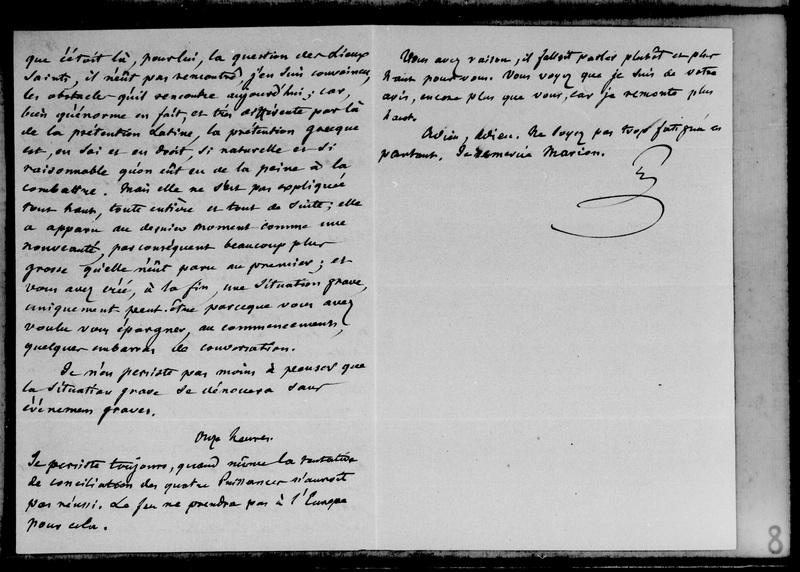 que c'était là, pour lui, la question des Lieux
Saints, il n'eût pas rencontré, j'en suis convaincu,
les obstacles qu'il rencontre aujourd'hui; car,
bien qu'énorme en fait, et très différente par là
de la prétention Latine, la prétention grecque
est, en soi et en droit, si naturelle et si
raisonnable qu'on eût eu de la peine à la
combattre. Mais elle ne s'est pas expliquée
tout haut, toute entière et tout de suite; elle
a apparu au dernier moment comme une
nouveauté, par conséquent beaucoup plus
grosse qu'elle n'eût paru au premier; et
vous avez créé, à la fin, une situation grave,
uniquement peut-être parceque vous avez
voulu vous épargner, au commencement,
quelques embarras de conversation.
Je n'en persiste pas moins à penser que
la situation grave se dénouera sans
événemens graves.
Onze heures.
Je persiste toujours, quand même la tentative
de conciliation des quatre Puissances n'auroit
pas réussi. Le feu ne prendra pas à l'Europe
pour cela.
Vous avez raison, il falloit parler plutôt et plus
haut pour vous. Vous voyez que je suis de votre
avis, encore plus que vous, car je remonte plus
haut.
Adieu, Adieu. Ne soyez pas trop fatiguée en
partant. Je remercie Marion.
8